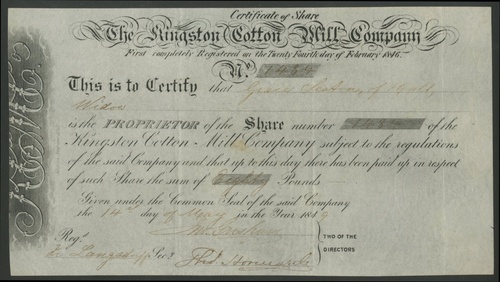 Certificate of Share
The Kingston Cotton Mill Company
First completely Registered on the Twenty Fourth day of February 1846.
No. 1484
This is to Certify that Grace of Hull,
Widow
is the PROPRIETOR of the Share number 1484 of the
Kingston Cotton-Mill Company subject to the regulations
of the said Company and that up to this day there has been paid up in respect
of such Share the sum of Eighty Pounds
Given under the Common Seal of the said Company
the 14th day of May in the Year 1849
TWO OF THE
DIRECTORS
Regd.
Secy.
Thos.